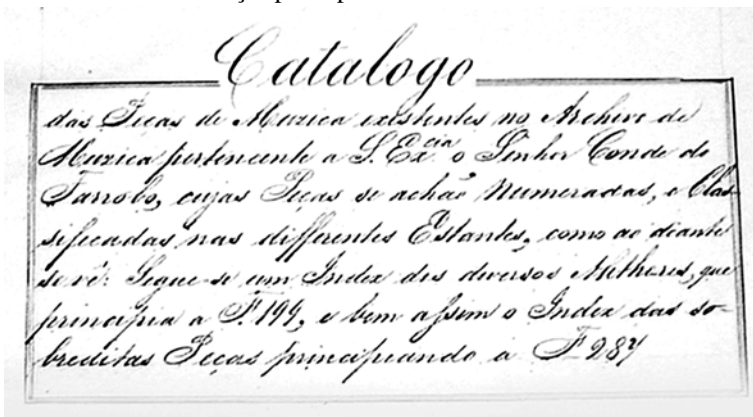 Catalogo
das Pecas de Muzica existentes no Archivo de
Muzica pertencente a S. Excia o Senhor Conde do
Farrobo, cujas Pecas se achão Numeradas, e Clas-
sificadas nas differentes Estantes, como ao diante
se vê: Segue-se um Index dos diversos Methodos, que
principia a F. 199, e bem assim o Index das so-
breditas Peças principiando a F 287